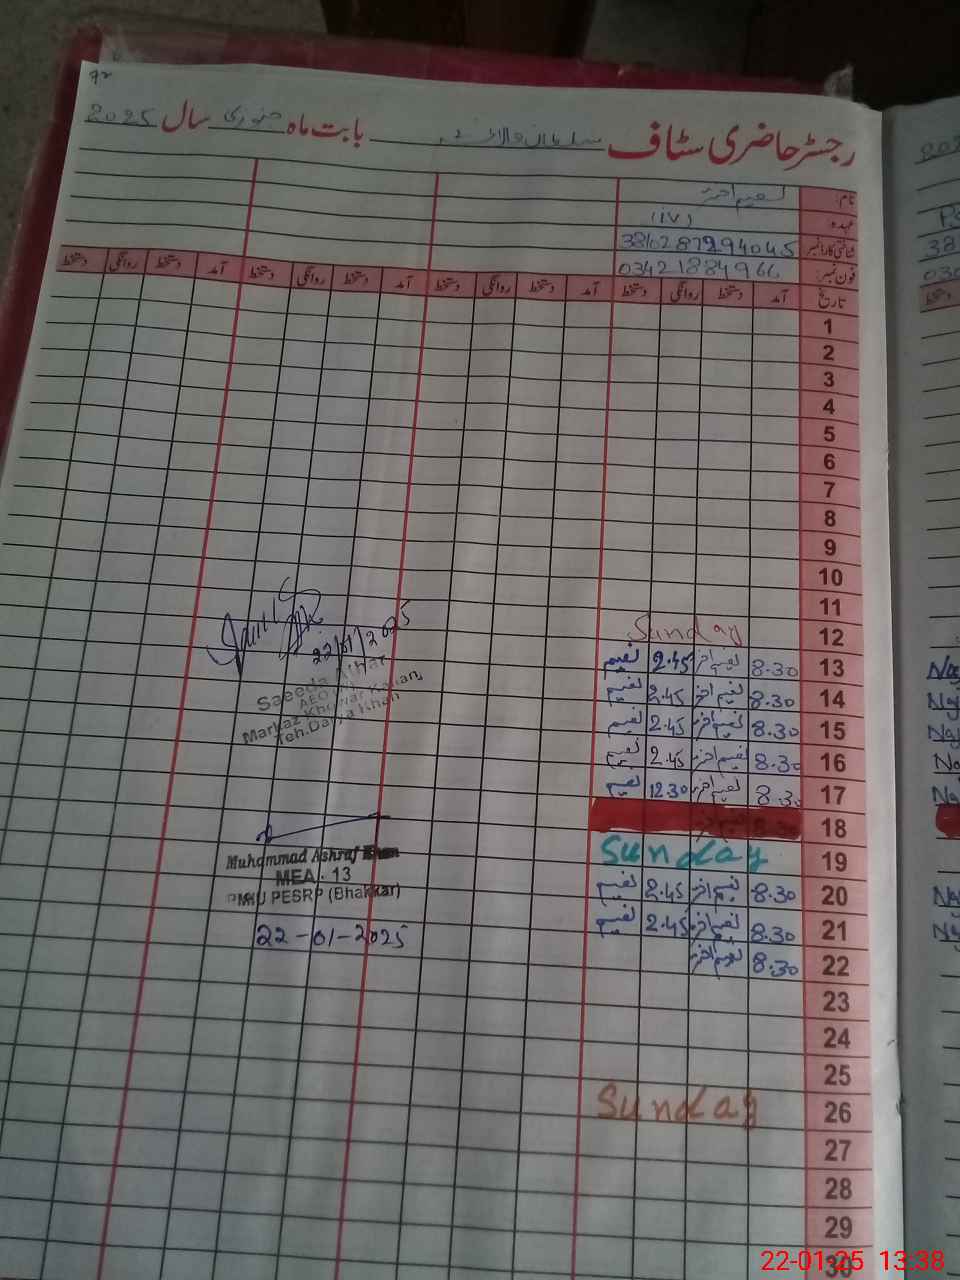 رجسٹر حاضری سٹاف بابت ماہ جنوری سال 2025
نام:
عہدہ: (iv)
شناختی کارڈ نمبر 3810287294045
فون نمبر: 03421884966
تاریخ آمد دستخط روانگی دستخط آمد دستخط روانگی دستخط آمد دستخط روانگی دستخط آمد دستخط روانگی دستخط
1
2
3
4
5
6
7
8
9
10
11
12 Sunday
13 8.30 نعیم اختر 2.45 نعیم
14 8.30 نعیم اختر 2.45 نعیم
15 8.30 نعیم اختر 2.45 نعیم
16 8.30 نعیم اختر 2.45 نعیم
17 8.30 نعیم اختر 12.30 نعیم
18 8.30
19 Sunday
20 8.30 نعیم اختر 2.45 نعیم
21 8.30 نعیم اختر 2.45 نعیم
22 8.30 نعیم اختر
23
24
25
26 Sunday
27
28
29
30
22/01/2025
Saeeda Athar
AEO
Markaz Khawar Kalan,
Teh.Darya Khan
Muhammad Ashraf Khan
MEA - 13
PMIU PESRP (Bhakkar)
22-01-2025
22-01-25 13:38